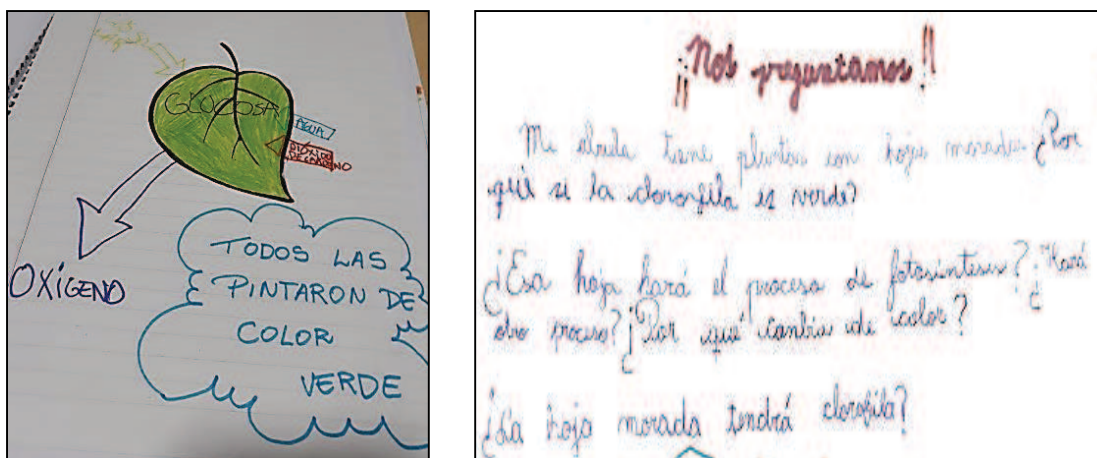 GLUCOSA
AGUA
DIÓXIDO
DE CARBONO
OXÍGENO
TODOS LAS
PINTARON DE
COLOR
VERDE
¡¡Nos preguntamos!!
Mi abuela tiene plantas con hojas moradas ¿Por
qué si la clorofila es verde?
¿Esa hoja hará el proceso de fotosíntesis? ¿Hará
otro proceso? ¿Por qué cambia de color?
¿La hoja morada tendrá clorofila?